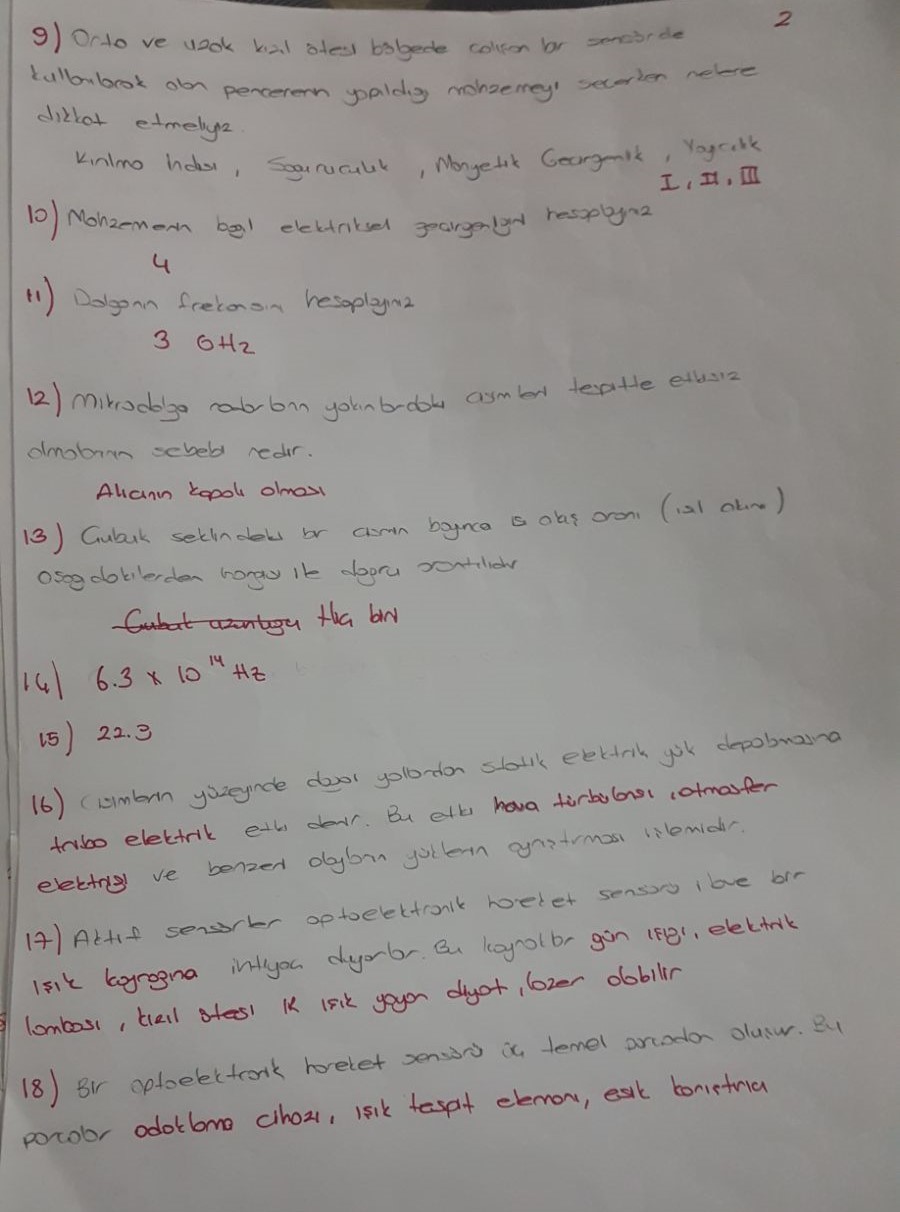 2
9) Orta ve uzak kızıl ötesi bölgede çalışan bir sensörde
kullanılacak olan pencerenin yapıldığı malzemeyi seçerken nelere
dikkat etmeliyiz.
Kırılma İndisi, Soğuruculuk, Manyetik Geçirgenlik, Yayıcılık
I, II, III
10) Malzemenin bağıl elektriksel geçirgenliğini hesaplayınız
4
11) Dalganın frekansını hesaplayınız
3 GHz
12) Mikrodalga radarların yakınlardaki cisimleri tespitte etkisiz
olmalarının sebebi nedir.
Alıcının kapalı olması
13) Çubuk şeklindeki bir cismin boyunca ısı akış oranı (ısıl akım)
aşağıdakilerden hangisi ile doğru orantılıdır
Çubuk uzunluğu Hiç biri
14) 6.3 x 10¹⁴ Hz
15) 22.3
16) Cisimlerin yüzeyinde doğal yollardan statik elektrik yük depolamasına
tribo elektrik etki denir. Bu etki hava türbülansı, atmosfer
elektriği ve benzeri olayların yüklerin ayrıştırması işlemidir.
17) Aktif sensörler optoelektronik hareket sensörü ilave bir
ışık kaynağına ihtiyaç duyarlar. Bu kaynaklar gün ışığı, elektrik
lambası, kızıl ötesi IR ışık yayan diyot, lazer olabilir
18) Bir optoelektronik hareket sensörü üç temel parçadan oluşur. Bu
parçalar odaklama cihazı, ışık tespit elemanı, eşik karıştırıcı